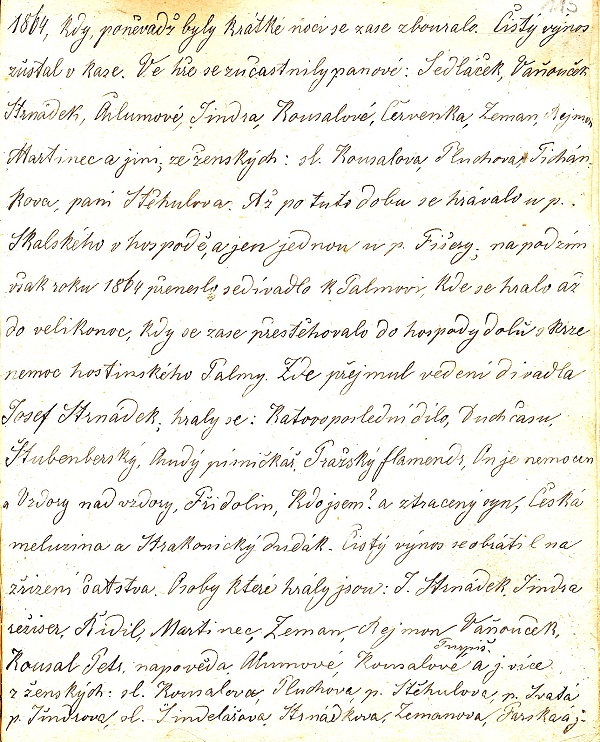 113
1864, kdy, poněvadž byly krátké noci se zase zbouralo. Čistý výnos
zůstal v kase. Ve hře se zúčastnily panové: Sedláček, Vaňouček
Strnádek, Ohlumové, Jindra, Kousalové, Červenka, Zeman, Rejmon
Martinec a jiní, ze ženských: sl. Kousalova, Pluchova, Tichán-
kova, paní Stěhulova. Až po tuto dobu se hrávalo u p.
Skalského v hospodě, a jen jednou u p. Fišery, na podzim
však roku 1864 přeneslo se divadlo k Palmovi, kde se hralo až
do velikonoc, kdy se zase přestěhovalo do hospody dolů skrze
nemoc hostinského Palmy. Zde přejmul vedení divadla
Josef Strnádek, hraly se: Katovo poslední dílo, Duch času,
Štubenberský, Chudý písničkář, Pražský flamendr, On je nemocen
a Vzdory nad vzdory, Fridolin, Kdo jsem? a ztracený syn, Česká
meluzina a Strakonický dudák. Čistý výnos se obrátil na
zřízení šatstva. Osoby které hrály jsou: J. Strnádek, Jindra
režiser, Řídil, Martinec, Zeman, Rejmon Vaňouček,
Kousal Petr, napověda Alumové Kousalové a j. více
z ženských: sl. Kousalova, Pluchova, p. Stěhulova, p. Svatá
p. Jindrova, sl. Šindelářova Strnádkova, Zemanova, Farska aj.